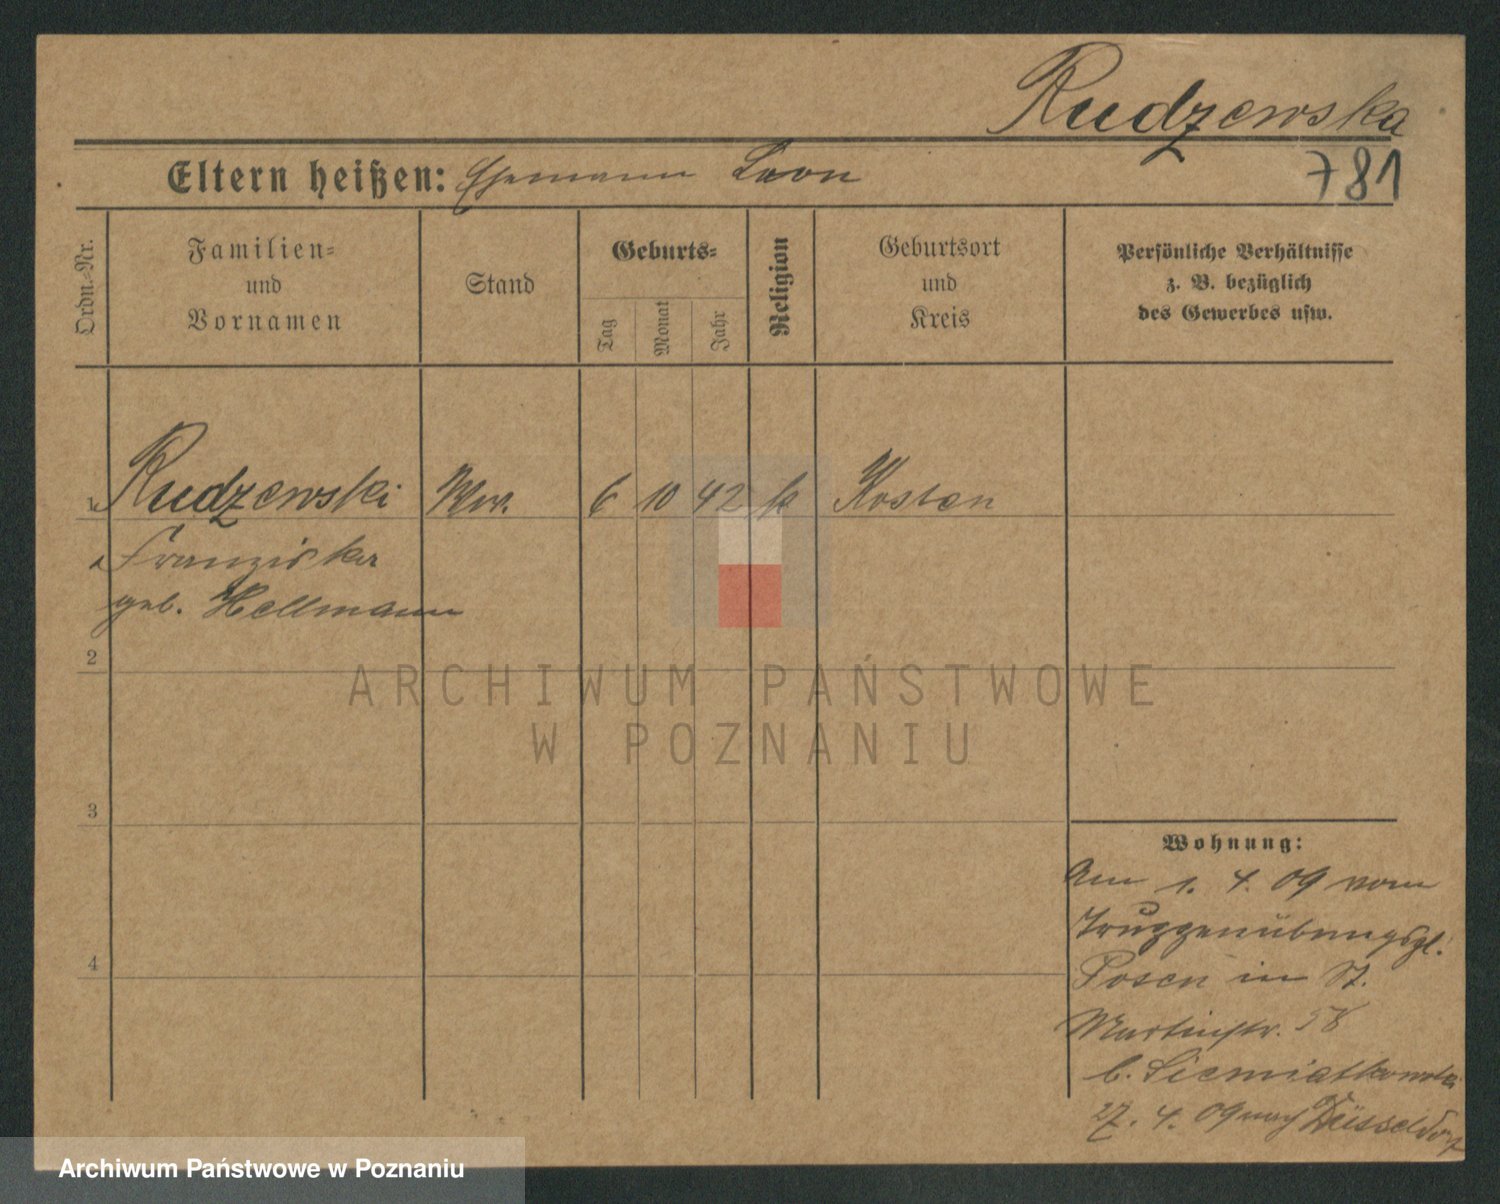 Rudzewska
781
Eltern heißen: Ehemann Leon
Ordn.=Nr.
Familien=
und
Vornamen
Stand
Geburts=
Tag
Monat
Jahr
Religion
Geburtsort
und
Kreis
Persönliche Verhältnisse
z. B. bezüglich
des Gewerbes usw.
1 Rudzewski Ww. 6 10 42 k Kosten
Franziska
geb. Hellmann
2
3
4
Wohnung:
Am 1. 4. 09 vom
Truppenübungspl.
Posen in St.
Martinstr. 58
b. Siemiatkowski
27. 4. 09 nach Düsseldorf
ARCHIWUM PAŃSTWOWE
W POZNANIU
Archiwum Państwowe w Poznaniu